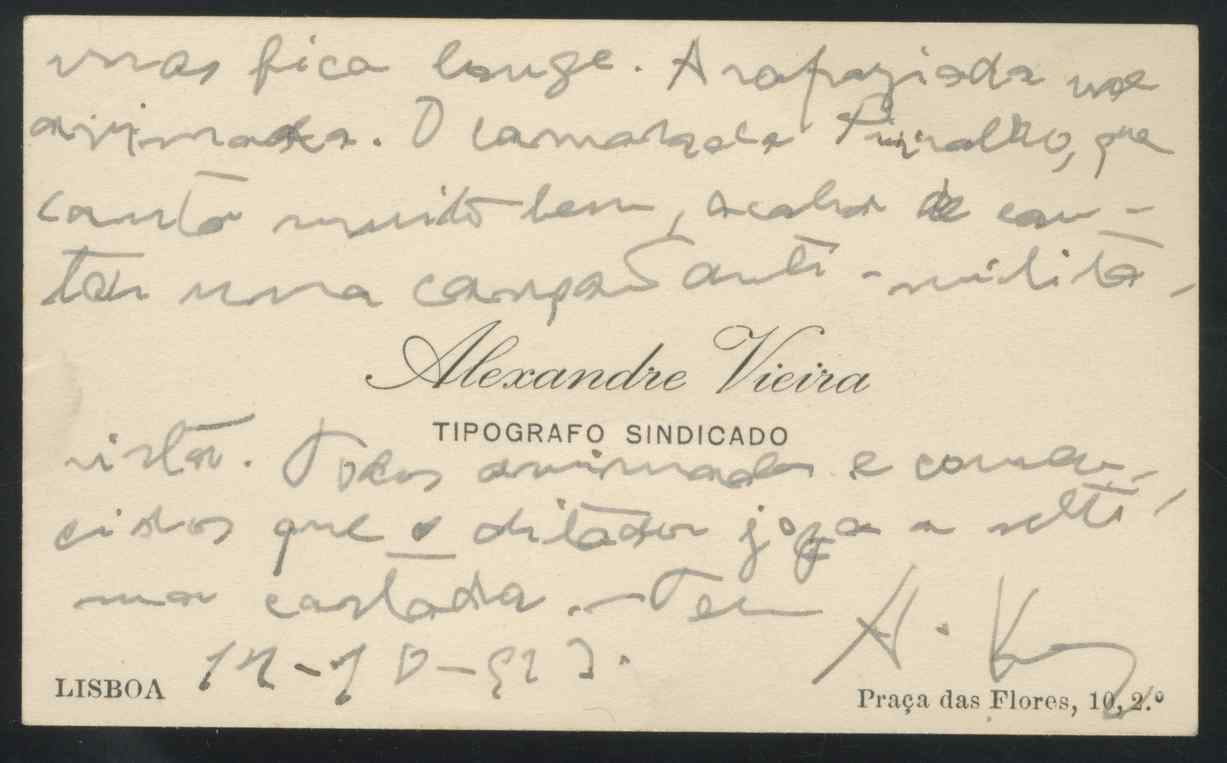 mas fica longe. A rapaziada vae
animada. O camarada Pinralho, que
canta muito bem, acaba de can-
tar uma canção anti-milita-
Alexandre Vieira
TIPOGRAFO SINDICADO
rista. Todos animados e conven-
cidos que o ditador joga a ulti-
ma cartada. - Teu A. V.
-10-
LISBOA
Praça das Flores, 10, 2.º